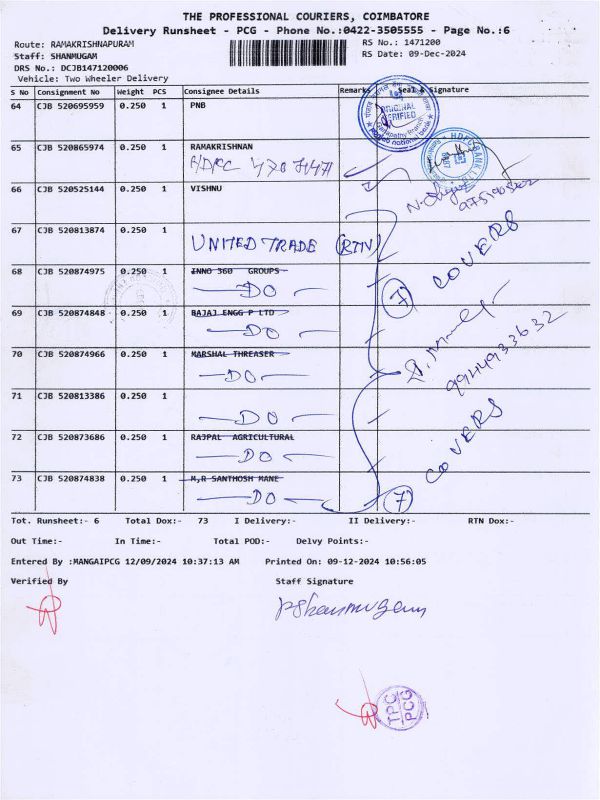 THE PROFESSIONAL COURIERS, COIMBATORE
Delivery Runsheet - PCG - Phone No.:0422-3505555 - Page No.:6
Route: RAMAKRISHNAPURAM
RS No.: 1471200
Staff: SHANMUGAM
RS Date: 09-Dec-2024
DRS No.: DCJB147120006
Vehicle: Two Wheeler Delivery
S No Consignment No Weight PCS Consignee Details Remarks Seal & Signature
64 CJB 520695959 0.250 1 PNB
ORIGINAL VERIFIED
punjab national bank
65 CJB 520865974 0.250 1 RAMAKRISHNAN
HDFC BANK LTD
66 CJB 520525144 0.250 1 VISHNU
67 CJB 520813874 0.250 1
UNITED TRADE (RTN)
68 CJB 520874975 0.250 1 INNO 360 GROUPS
DO
(7) COVERS
69 CJB 520874848 0.250 1 BAJAJ ENGG P LTD
DO
9944933632
70 CJB 520874966 0.250 1 MARSHAL THREASER
DO
71 CJB 520813386 0.250 1
DO
72 CJB 520873686 0.250 1 RAJPAL AGRICULTURAL
DO
73 CJB 520874838 0.250 1 M,R SANTHOSH MANE
DO
(7) COVERS
Tot. Runsheet:- 6 Total Dox:- 73 I Delivery:- II Delivery:- RTN Dox:-
Out Time:- In Time:- Total POD:- Delvy Points:-
Entered By :MANGAIPCG 12/09/2024 10:37:13 AM Printed On: 09-12-2024 10:56:05
Verified By Staff Signature
PShanmugam
TPC
PCG